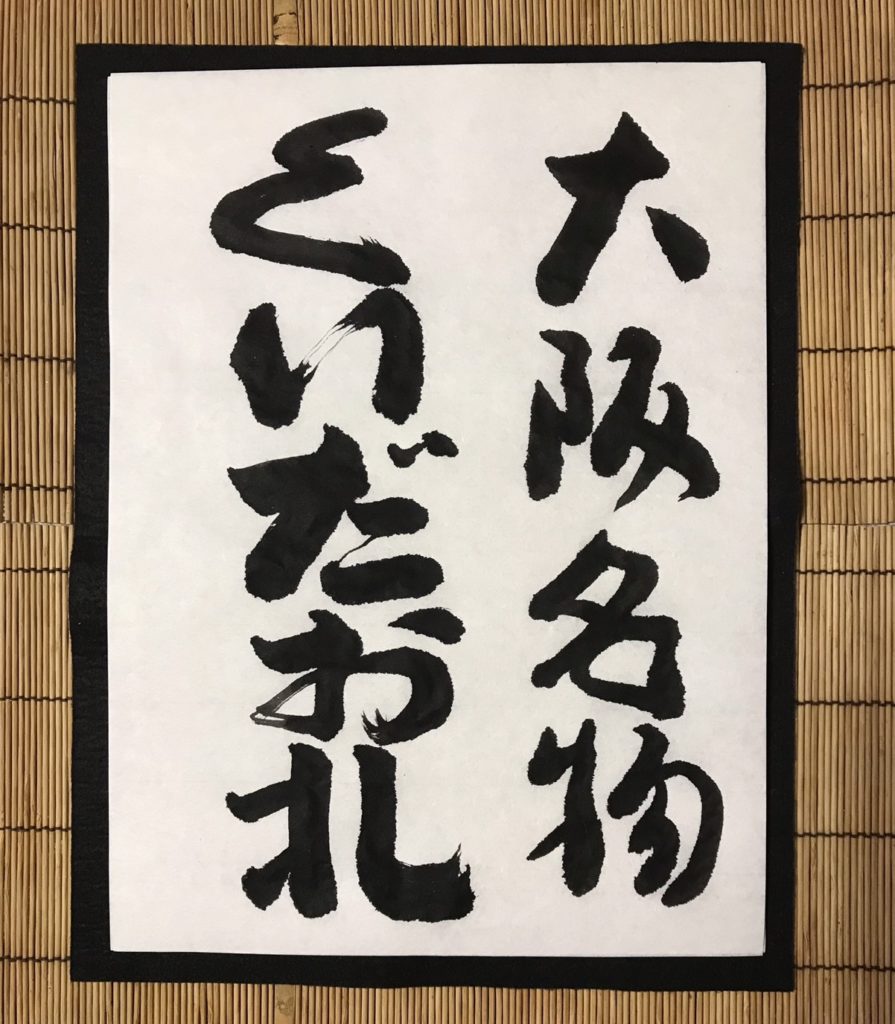 大阪名物
くいだおれ